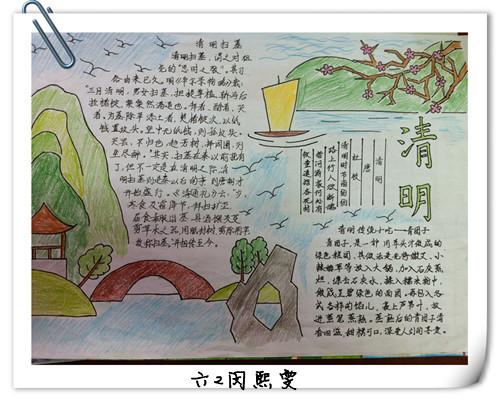 清明扫墓
清明扫墓，谓之对祖
先的“思时之敬”。其习
俗由来已久。明《帝京景物略》载：
“三月清明，男女扫墓，担提尊榼，轿马后
挂楮锭，粲粲然满道也。拜者、酹者、哭
者、为墓除草添土者，焚楮锭次，以纸
钱置坟头。望中无纸钱，则孤坟矣。
哭罢，不归也，趋芳树，择园圃，列
坐尽醉。”其实，扫墓在秦以前就有
了，但不一定是在清明之际，清
明扫墓则是秦以后的事。到唐朝才
开始盛行。《清通礼》云：“岁，
寒食及霜降节，拜扫圹茔，
届期素服诣墓，具酒馔及芟
剪草木之器，周胝封树，剪除荆草
故称扫墓。”并相传至今。
清明
唐
杜牧
清明时节雨纷纷
路上行人欲断魂
借问酒家何处有
牧童遥指杏花村
清明
清明传统小吃——青团子
青团子，是一种用草头汁做成的
绿色糕团，其做法是先将嫩艾、小
棘姆草等放入大锅，加入石灰蒸
烂，漂去石灰水，揉入糯米粉中，
做成呈碧绿色的面团。再包入各
式各样的馅儿，表上芦苇叶，放
进蒸笼蒸熟。蒸熟后的青团子清
香四溢，甜糯可口，深受人们的喜爱。
六2闵熙雯